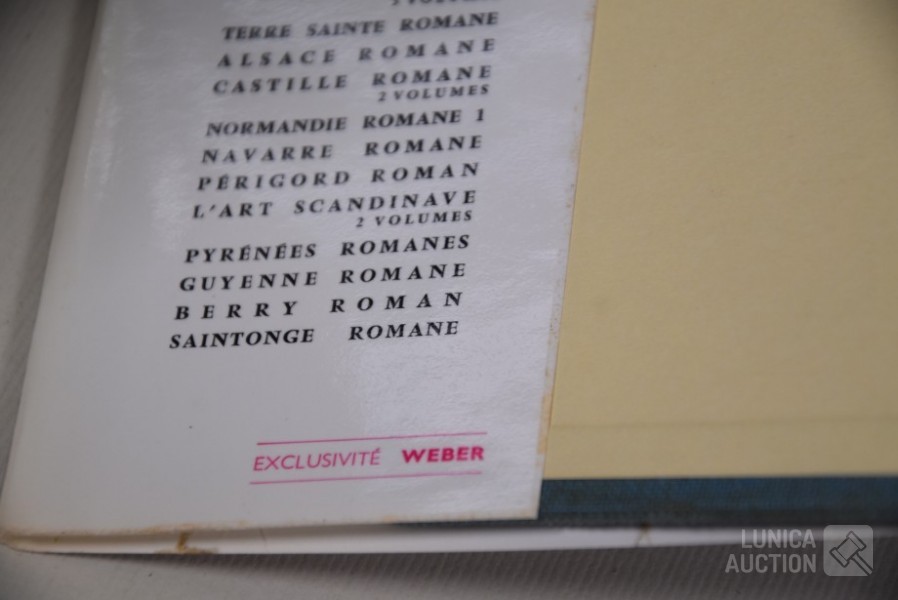 TERRE SAINTE ROMANE
ALSACE ROMANE
CASTILLE ROMANE
2 VOLUMES
NORMANDIE ROMANE 1
NAVARRE ROMANE
PÉRIGORD ROMAN
L'ART SCANDINAVE
2 VOLUMES
PYRÉNÉES ROMANES
GUYENNE ROMANE
BERRY ROMAN
SAINTONGE ROMANE
EXCLUSIVITÉ WEBER
LUNICA
AUCTION